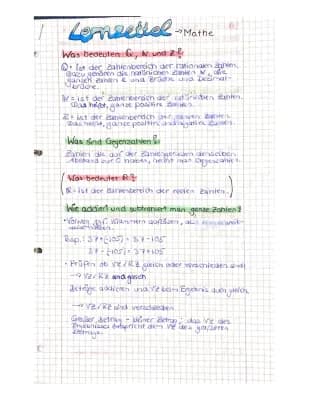 Lernzettel → Mathe
Was bedeuten Q, N und Z?
Q = Ist der Zahlenbereich der rationalen Zahlen.
Dazu gehören die natürlichen Zahlen N, die
ganzen Zahlen Z und Brüche und Dezimal-
brüche.
N = ist der Zahlenbereich der natürlichen Zahlen.
Das heißt, ganze positive Zahlen.
Z = ist der Zahlenbereich der ganzen Zahlen.
Das heißt, ganze positive und negative Zahlen.
Was sind Gegenzahlen?
Zahlen die auf der Zahlengeraden denselben
Abstand zur 0 haben, nennt man Gegenzahlen.
Was bedeutet R?
R = ist der Zahlenbereich der reellen Zahlen.
Wie addiert und subtrahiert man ganze Zahlen?
auflösen,
Bsp.: 37+(-105) = 37-105
37-(-105) = 37+105
• Prüfen ob VZ/RZ gleich oder verschieden sind
→ VZ/RZ sind gleich
Beträge addieren und VZ beim Ergebnis auch gleich.
→ VZ/RZ sind verschieden
Großer Betrag - kleiner Betrag; das VZ des
Ergebnisses entspricht dem VZ des größeren
Betrags.